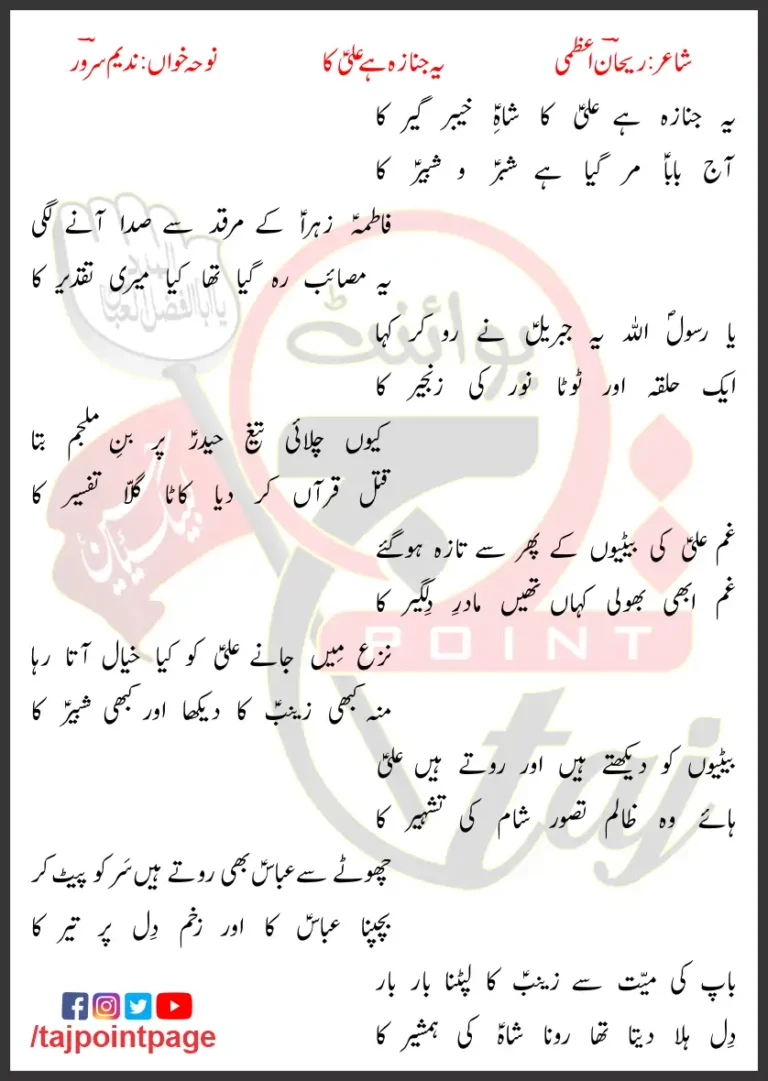 شاعر: ریحانؔ اعظمی یہ جنازہ ہے علیؑ کا نوحہ خواں: ندیم سرورؔ
یہ جنازہ ہے علیؑ کا شاہِؑ خیبر گیر کا
آج باباؑ مر گیا ہے شبرؑ و شبیرؑ کا
فاطمہؑ زہراؑ کے مرقد سے صدا آنے لگی
یہ مصائب رہ گیا تھا کیا میری تقدیر کا
یا رسولؐ اللہ یہ جبریلؑ نے رو کر کہا
ایک حلقہ اور ٹوٹا نور کی زنجیر کا
کیوں چلائی تیغ حیدرؑ پر بنِ ملجم بتا
قتل قرآں کر دیا کاٹا گلّا تفسیر کا
غم علیؑ کی بیٹیوں کے پھر سے تازہ ہوگئے
غم ابھی بھولی کہاں تھیں مادرِ دِلگیر کا
نزع مِیں جانے علیؑ کو کیا خیال آتا رہا
منہ کبھی زینبؑ کا دیکھا اور کبھی شبیرؑ کا
بیٹیوں کو دیکھتے ہیں اور روتے ہیں علیؑ
ہائے وہ ظالم تصور شام کی تشہیر کا
چھوٹے سے عباسؑ بھی روتے ہیں سَر کو پیٹ کر
بچپنا عباسؑ کا اور زخم دِل پر تیر کا
باپ کی میّت سے زینبؑ کا لپٹنا بار بار
دِل ہلا دیتا تھا رونا شاہؑ کی ہمشیر کا
/tajpointpage
پوائنٹ
تاج
POINT
taj
یا ابا الفضل العباس
لبیک یا حسین